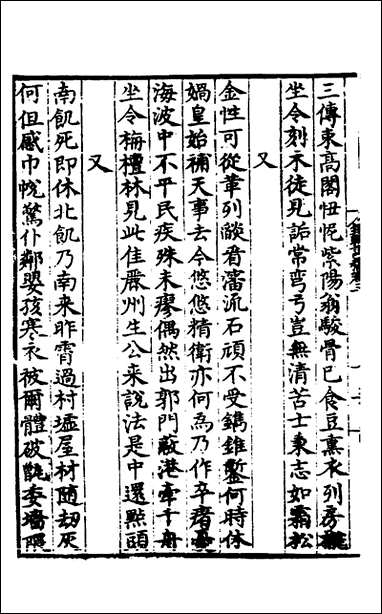 三傳束高閣忸怩紫陽翁駿骨已食豆熏衣列房櫳
坐令刻木徒見詬常彎弓豈無清苦士秉志如霜松
又
金性可從革列燄看瀋流石頑不受鐫錐鑿何時休
媧皇始補天事去今悠悠精衛亦何為乃作卒瘏憂
海波中不平民疾殊未瘳偶然出郭門蔽港牽千舟
坐令栴檀林見此佳麗州生公来說法是中還㸃頭
又
南飢死即休北飢乃南来昨宵過村墟屋材随劫灰
何但感巾帨驚仆鄰嬰孩寒衣被爾體破甑委墻隈